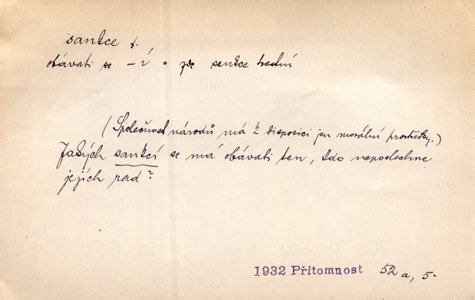 sankce f.
obávati se -í
(Společnost národů má k disposici jen morální prostředky.)
Jakých sankcí se má obávati ten, kdo neposlechne
jejich rad?
1932 Přítomnost 52 a, 5.